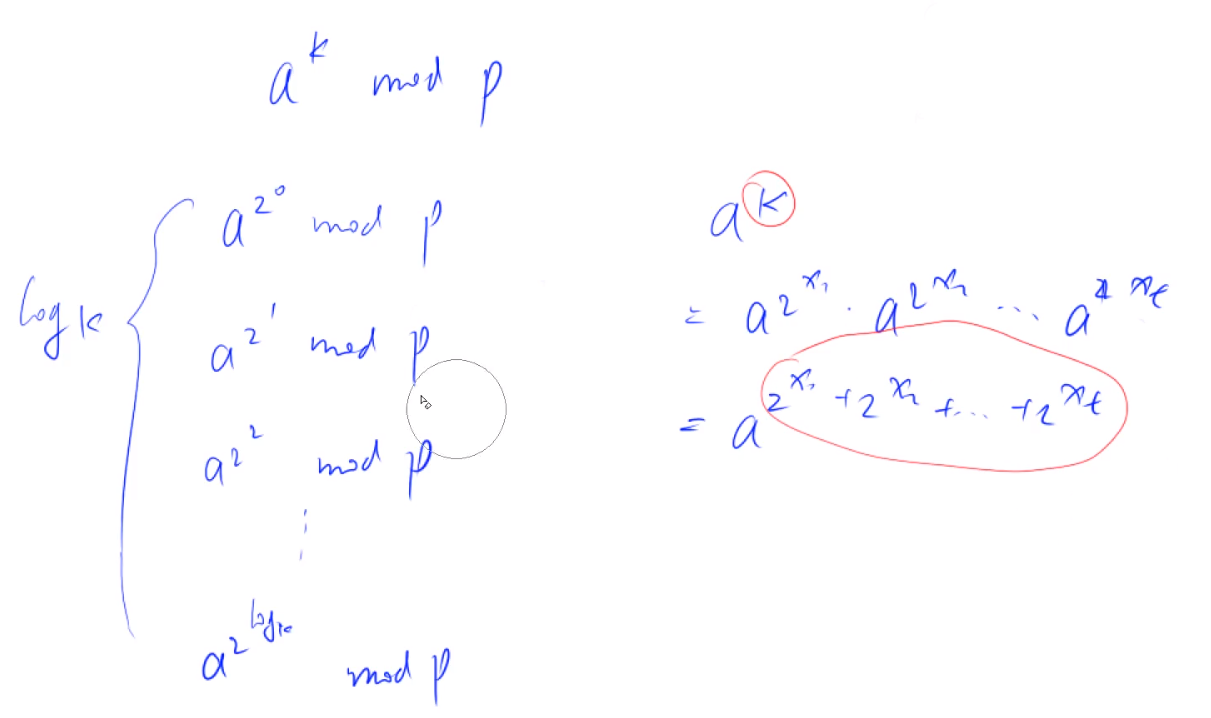 a^k mod p
a^{2^0} mod p
log k
a^{2^1} mod p
a^{2^2} mod p
⋮
a^{2^{log k}} mod p
a^k
= a^{2^{x_1}} · a^{2^{x_2}} ... a^{2^{x_t}}
= a^{2^{x_1} + 2^{x_2} + ... + 2^{x_t}}